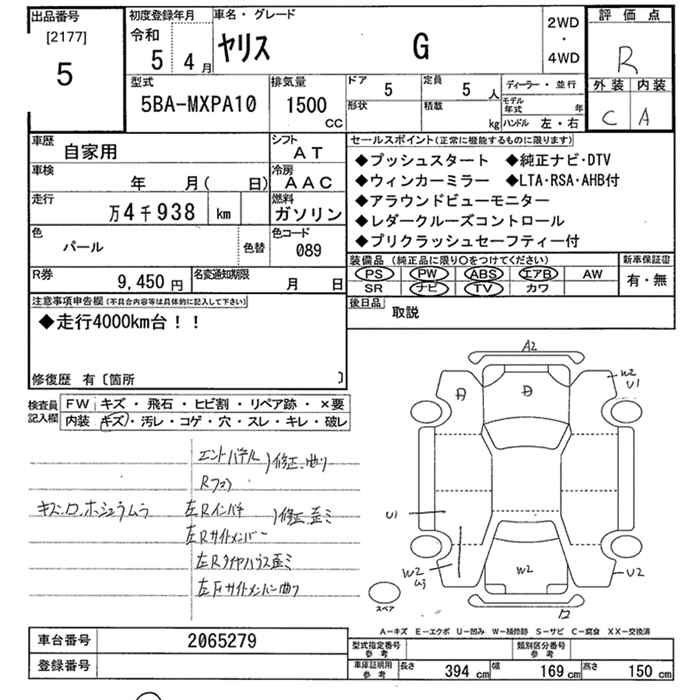 出品番号
[2177]
5
初度登録年月
令和
5 4月
車名・グレード
ヤリス G
2WD
・
4WD
評価点
R
外装 内装
C A
型式
5BA-MXPA10
排気量
1500
CC
ドア
5
定員
5人
形状
積載
kg
ディーラー・並行
モデル年式 年
ハンドル 左・右
車歴
自家用
シフト
AT
車検
年 月( 日)
冷房
AAC
走行
万4千938 km
燃料
ガソリン
色
パール
色替
色コード
089
R券
9,450円
名変通知期限
月 日
セールスポイント(正常に機能するものに限ります)
◆プッシュスタート ◆純正ナビ・DTV
◆ウィンカーミラー ◆LTA・RSA・AHB付
◆アラウンドビューモニター
◆レダークルーズコントロール
◆プリクラッシュセーフティー付
装備品(純正品に限り○をつけてください)
新車保証書
PS PW ABS エアB AW
有・無
SR ナビ TV カワ
後日品
取説
注意事項申告欄(不具合内容等は具体的に記入して下さい)
◆走行4000km台!!
修復歴 有〔箇所 〕
検査員記入欄
FW キズ・飛石・ヒビ割・リペア跡・×要
内装 キズ・汚レ・コゲ・穴・スレ・キレ・破レ
エンドパネル 修正、曲り
Rフロア
キズ、ロ、ホシュウムラ
左Rインパネ 修正、歪ミ
左Rサイドメンバー
左Rタイヤハウス歪ミ
左Fサイドメンバー曲り
A2
A
A
W2
U1
U1
W2
U3
W2
U2
スペア
A-キズ E-エクボ U-凹み W-補修跡 S-サビ C-腐食 XX-交換済
車台番号
2065279
登録番号
型式指定番号
参考
類別区分番号
参考
車庫証明用
参考
長さ 394 cm 幅 169 cm 高さ 150 cm